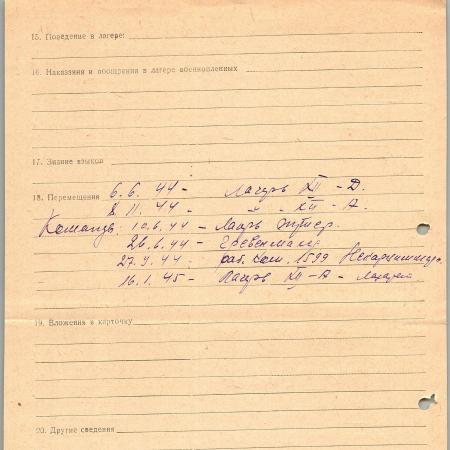 15. Поведение в лагере:
16. Наказания и поощрения в лагере военнопленных
17. Знание языков
18. Перемещения 6.6.44 - Лагерь XII - Д.
8.11.44 - " - XII - А.
Команды 10.6.44 - Лагерь
26.6.44 - Гревенмахер
27.9.44 - раб. ком. 1599
16.1.45 - Лагерь XII - А - Лазарет
19. Вложения в карточку
20. Другие сведения